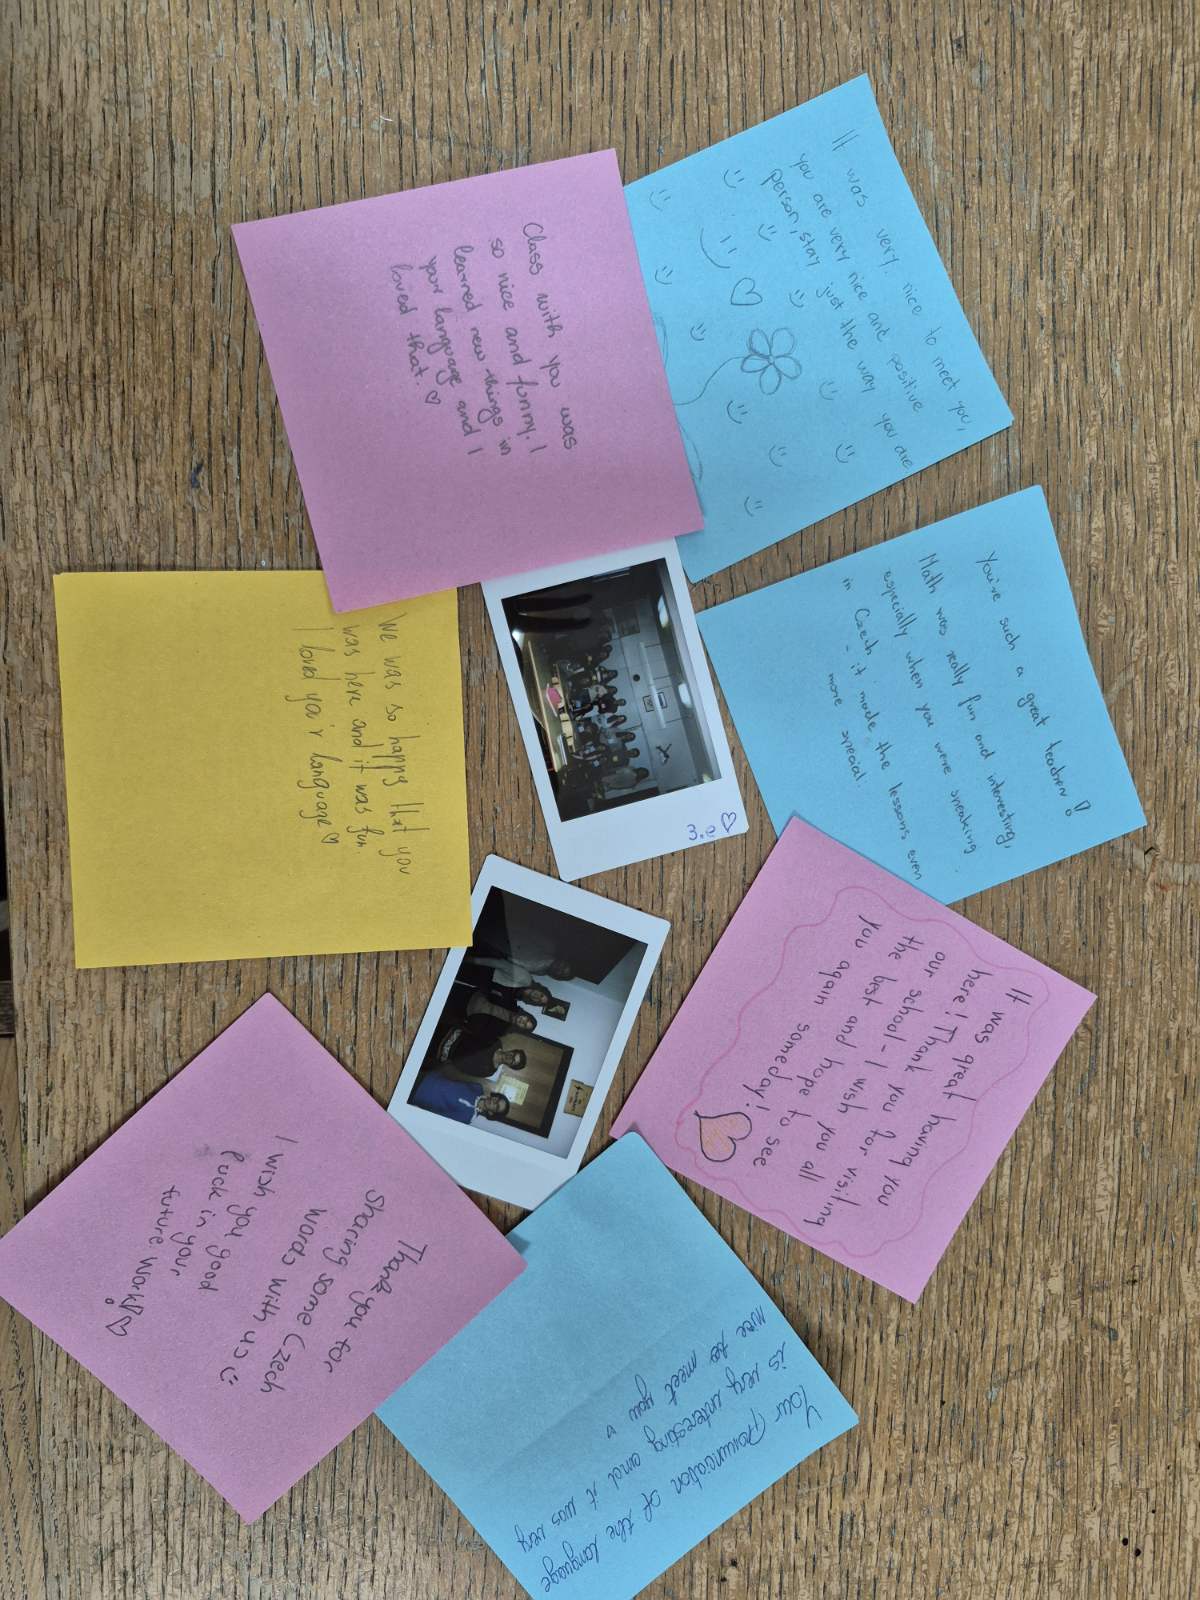 It was very nice to meet you,
you are very nice and positive
person, stay just the way you are
Class with you was
so nice and funny. I
learned new things in
your language and I
loved that. ♡
You're such a great teacher!
Math was really fun and interesting,
especially when you were speaking
in Czech - it made the lessons even
more special.
We was so happy that you
was here and it was fun.
I loved you'r language ♡
3.e ♡
It was great having you
here! Thank you for visiting
our school - I wish you all
the best and hope to see
you again someday!
Thank you for
sharing some Czech
words with us :)
I wish you good
luck in your
future work! ♡
Your pronunciation of the language
is very interesting and it was very
nice to meet you